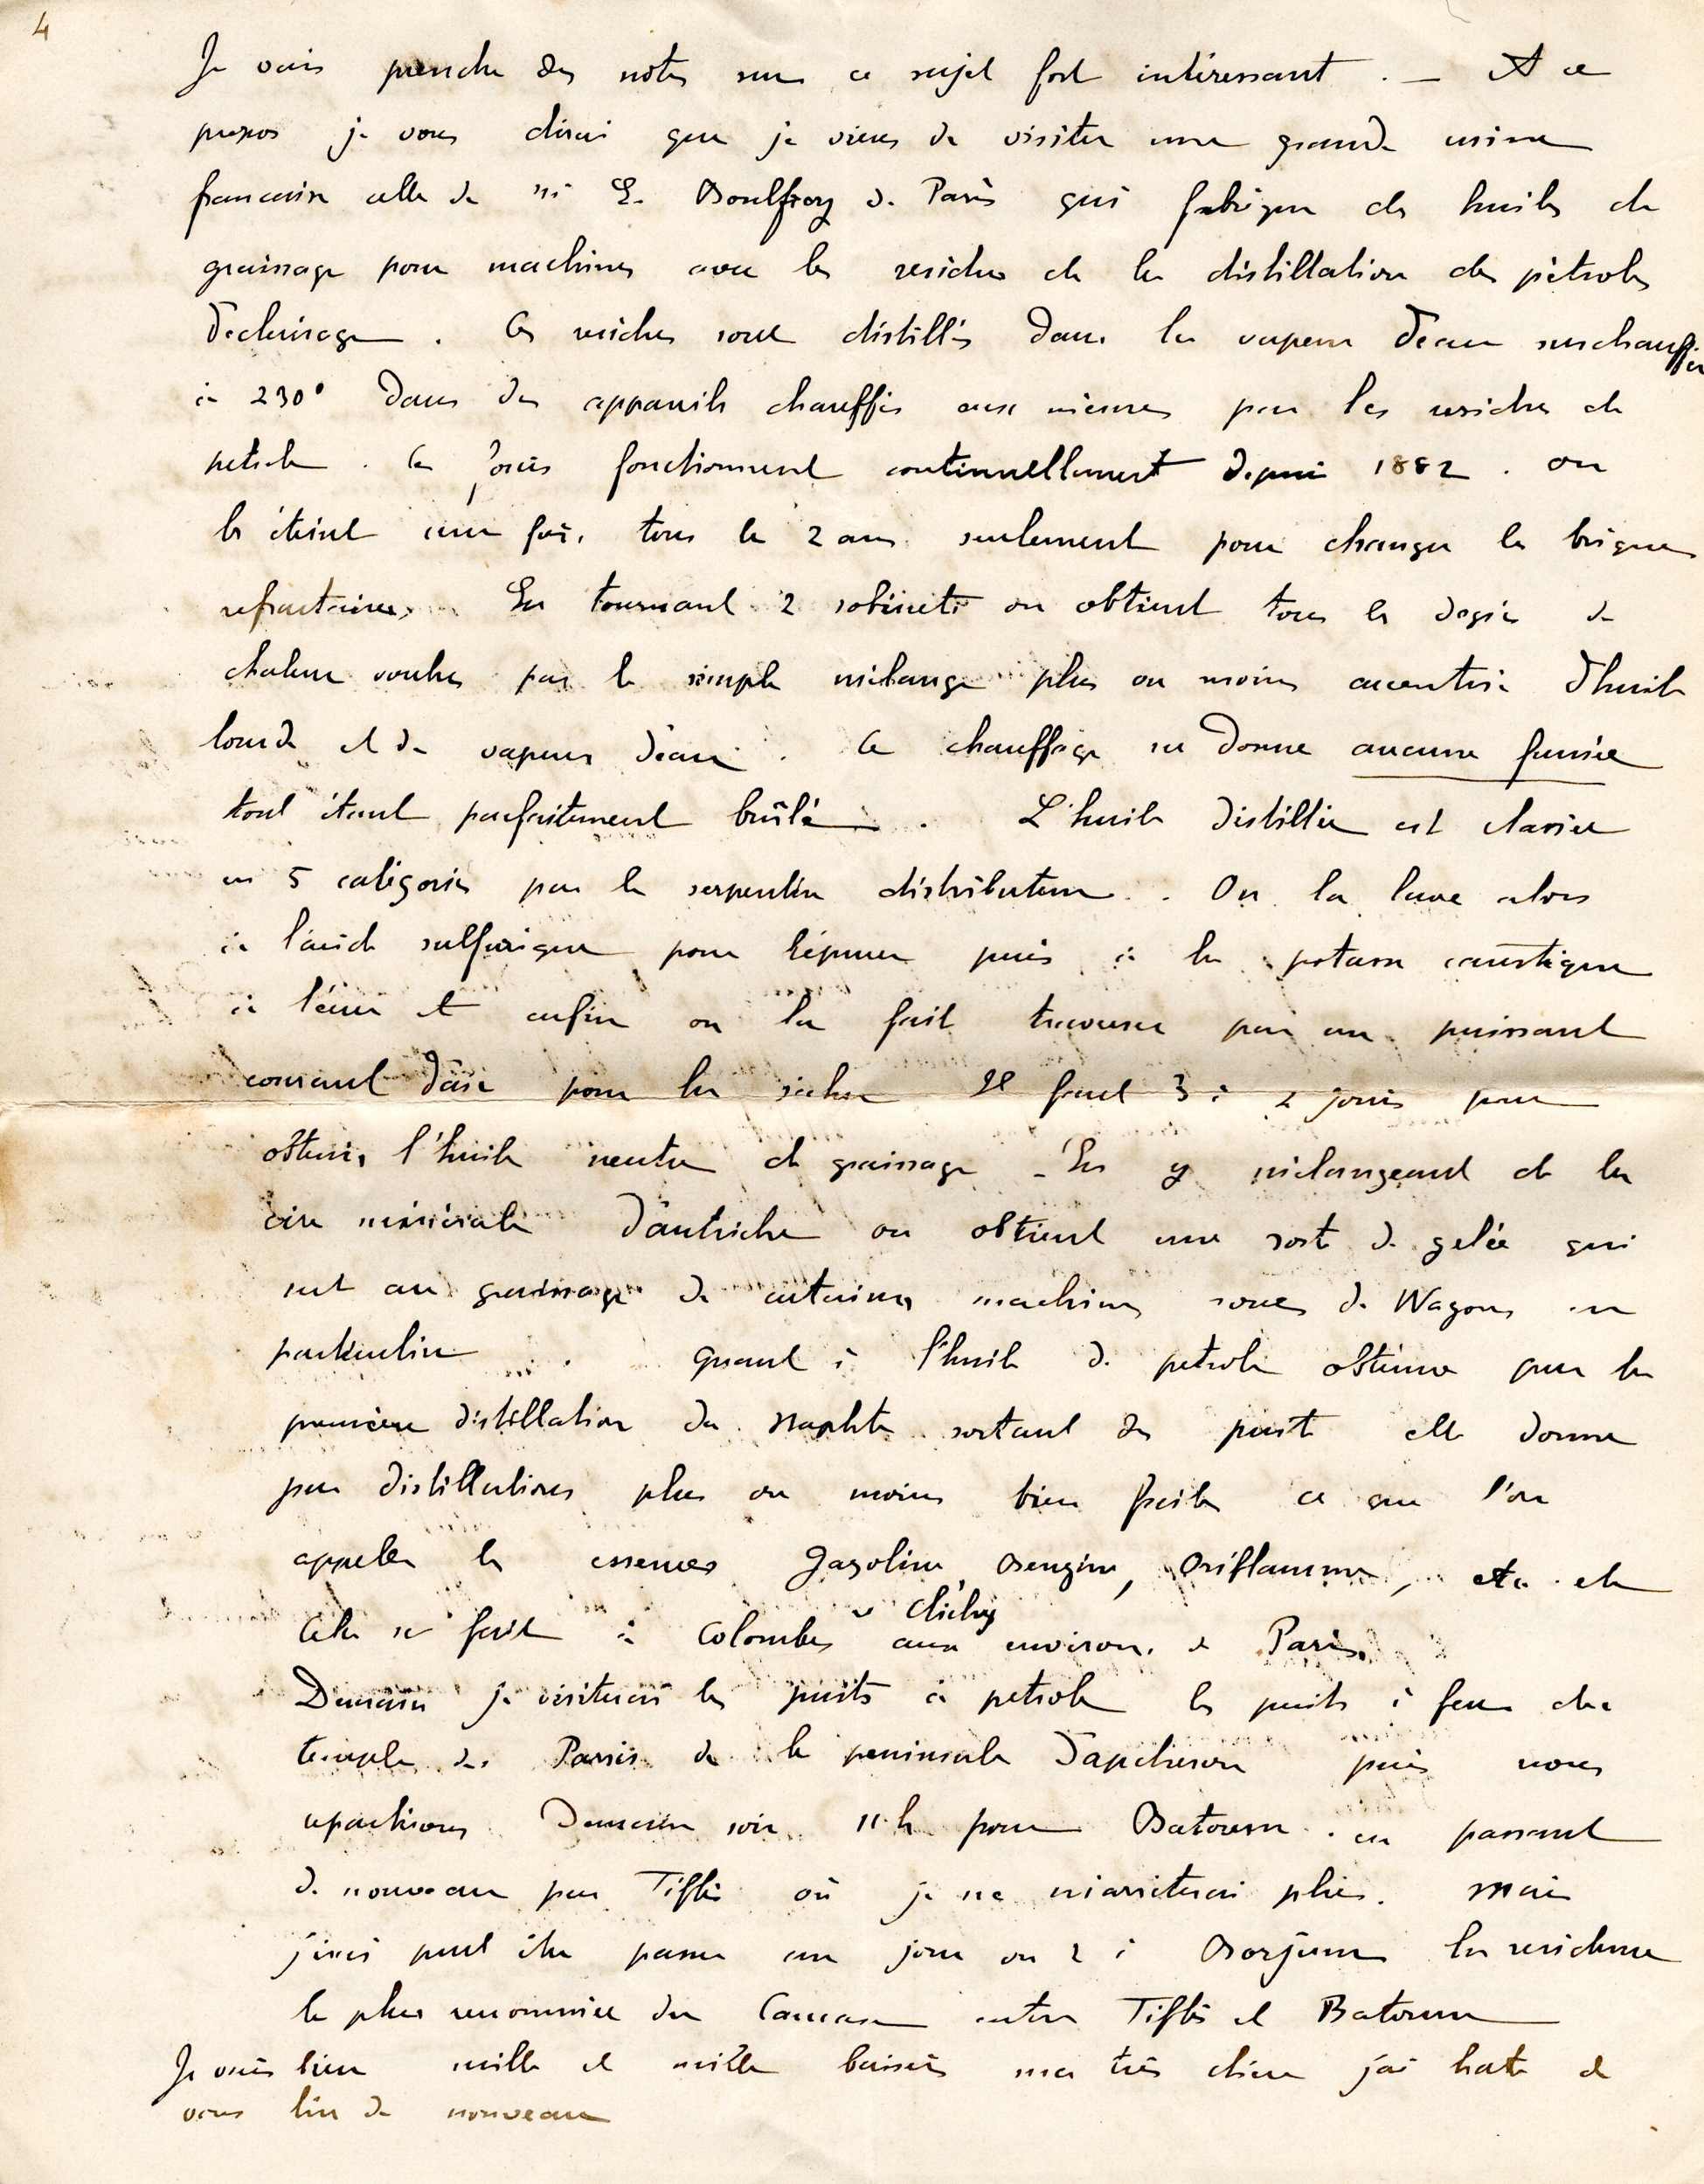 4
Je vais prendre des notes sur ce sujet fort intéressant . — A ce
propos je vous dirai que je viens de visiter une grande usine
francaise celle de E. Boulfroy de Paris qui fabrique des huiles de
graissage pour machines avec les residus de la distillation des pétroles
d'eclairage . Ces residus sont distillés dans la vapeur d'eau surchauffée
à 230° dans des appareils chauffés eux mêmes par les residus de
petrole . Ces fours fonctionnent continuellement depuis 1882 . on
les éteint une fois tous les 2 ans seulement pour changer les briques
refractaires. En tournant 2 robinets on obtient tous les degrés de
chaleur voulus par le simple mélange plus ou moins accentué d'huile
lourde et de vapeur d'eau . Ce chauffage ne donne aucune fumée
tout étant parfaitement brûlé . L'huile distillée est classée
en 5 catégories par le serpentin distributeur . On la lave alors
à l'acide sulfurique pour l'épurer puis à la potasse caustique
à l'eau et enfin on la fait traverser par un puissant
courant d'air pour la sécher Il faut 3 à 2 jours pour
obtenir l'huile neutre de graissage - En y mélangeant de la
cire minérale d'autriche on obtient une sorte de gelée qui
sert au graissage de certaines machines roues de Wagons en
particulier . Quant à l'huile de petrole obtenue par la
première distillation du Naphte sortant des puits elle donne
par distillations plus ou moins bien faites ce que l'on
appelle les essences Gazoline, Benzine, Oriflamme, etc etc
Cela se fait à Colombes et Clichy aux environs de Paris.
Demain je visiterai les puits à petrole les puits à feu du
temple des Parsis de la peninsule d'apcheron puis nous
repartirons demain soir 11 h pour Batoum . en passant
de nouveau par Tiflis où je ne m'arrêterai plus. Mais
j'irai peut être passer un jour ou 2 à Borjom la residence
la plus renommée du Caucase entre Tiflis et Batoum
Je vous bien mille et mille baisers ma très chère j'ai hate de
vous lire de nouveau